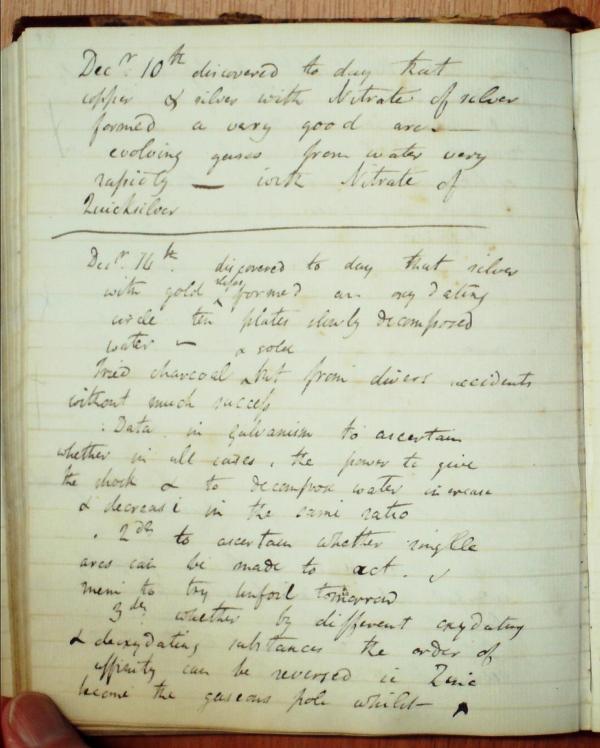 Dec^r. 10^th discovered to day that
copper & silver with Nitrate of silver
formed a very good arc. —
evolving gases from water very
rapidly — with Nitrate of
Quicksilver
Dec^r. 14^th. discovered to day that silver
with gold formed an oxydating
circle ten plates slowly decomposed
water —
& gold
Tried charcoal but from divers accidents
without much success
Data in galvanism to ascertain
whether in all cases, the power to give
the shock & to decompose water increase
& decrease in the same ratio
. 2^dly to ascertain whether single
arcs can be made to act.
mem to try tinfoil tomorrow
3^dly whether by different oxydating
& deoxydating substances the order of
affinity can be reversed ie Zinc
become the gaseous pole whilst